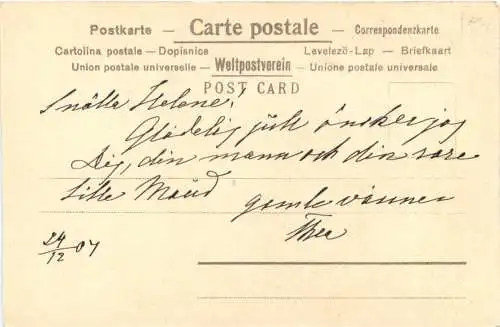 Postkarte — Carte postale — Correspondenzkarte
Cartolina postale — Dopisnice
Levelező-Lap — Briefkaart
Union postale universelle — Weltpostverein — Unione postale universale
POST CARD
Snälla Helene!
Glädelig jul önsker jag
Dig, din mann och din rare
lille Maud
gamle vännen
Thea
24/12 07